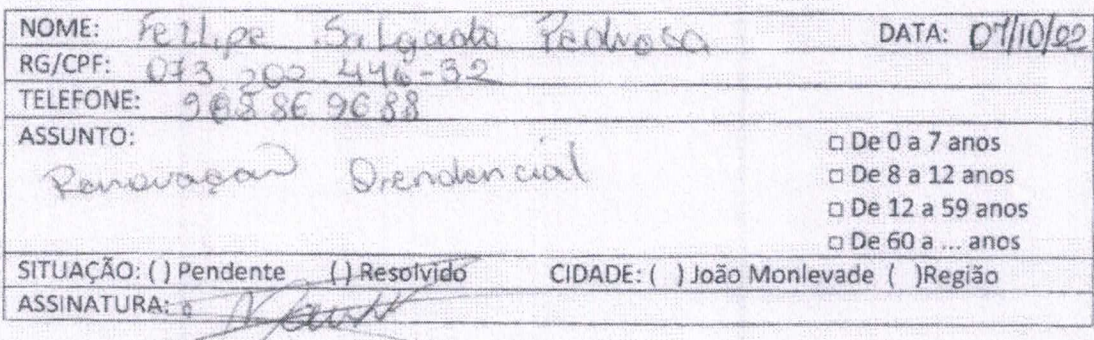 NOME: Fellipe Salgado Pedrosa DATA: 07/10/22
RG/CPF: 073 202 446-32
TELEFONE: 988869688
ASSUNTO:
Renovação
□ De 0 a 7 anos
□ De 8 a 12 anos
□ De 12 a 59 anos
□ De 60 a ... anos
SITUAÇÃO: ( ) Pendente ( ) Resolvido CIDADE: ( ) João Monlevade ( )Região
ASSINATURA: